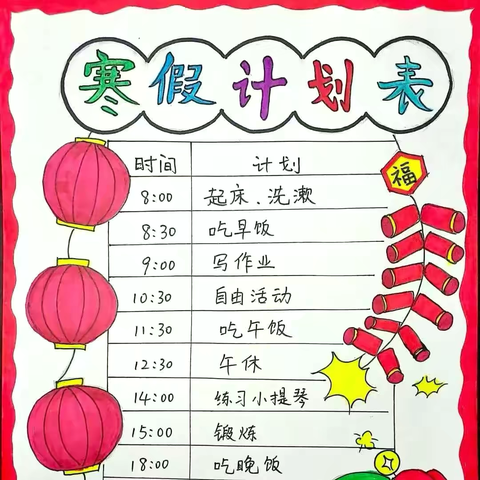 寒假计划表
时间 计划
福
8:00 起床、洗漱
8:30 吃早饭
9:00 写作业
10:30 自由活动
11:30 吃午饭
12:30 午休
14:00 练习小提琴
15:00 锻炼
18:00 吃晚饭